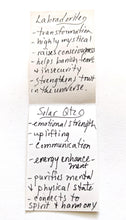 Labradorite
- transformation
- highly mystical
- raises consciousness
- helps banish fears
& insecurity
- strengthens trust
in the universe.
Solar Qtz
- emotional strength
- uplifting
- communication
- energy enhance-
ment
- purifies mental
& physical state
- connects to
spirit & harmony